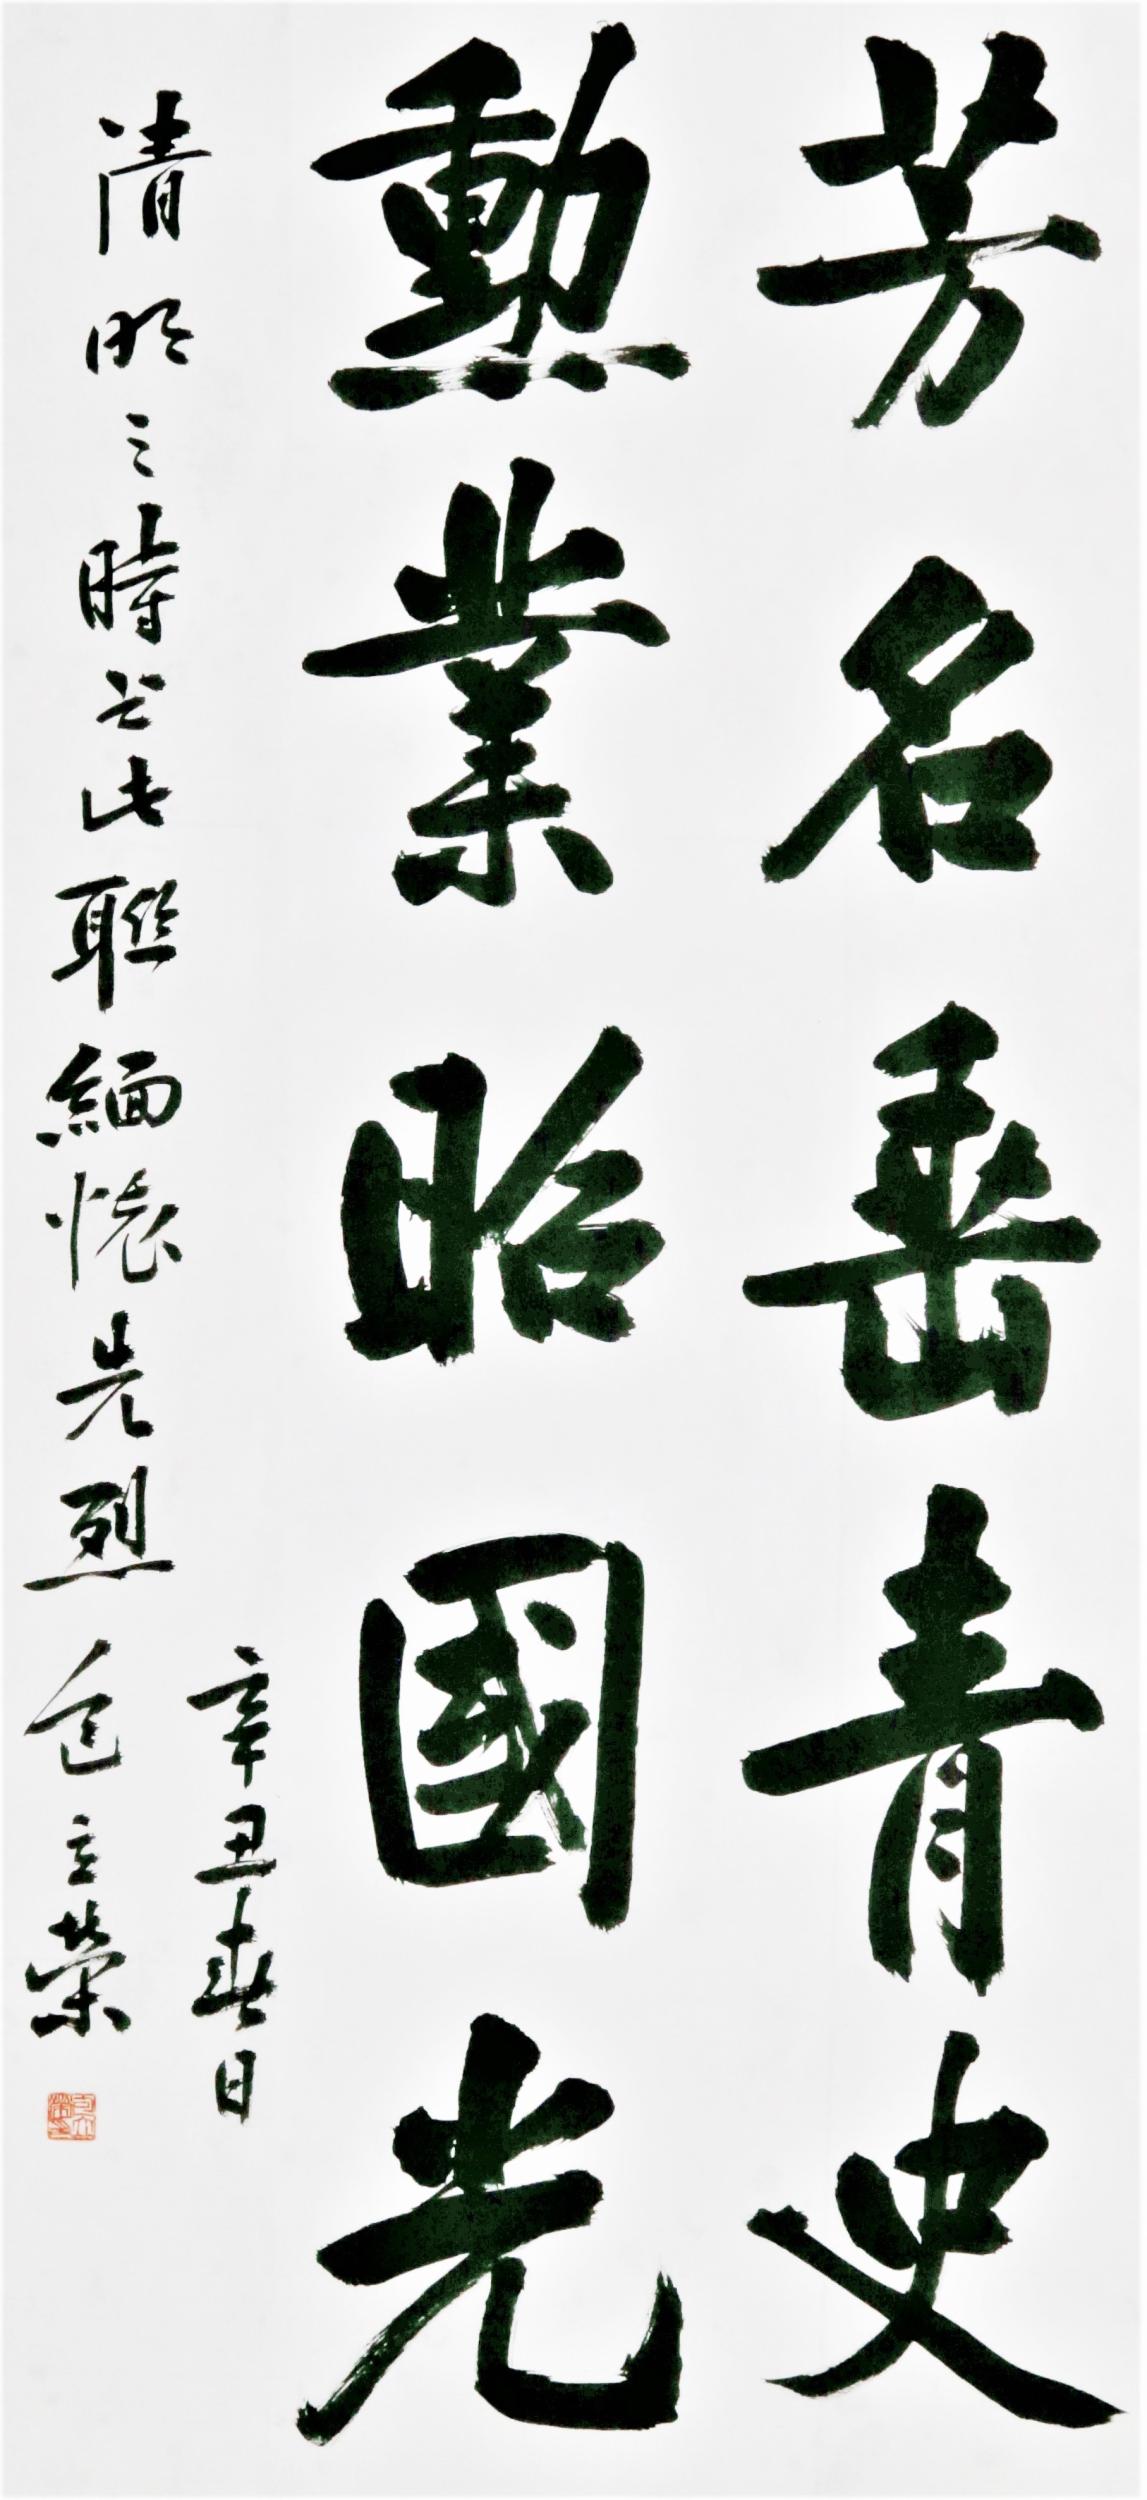 芳名垂青史
勳業昭國光
辛丑春日
清明之時書此聯緬懷先烈 包立榮